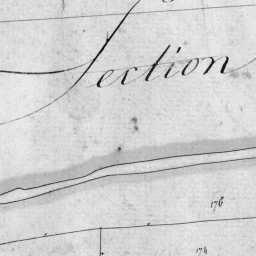 Section
176
174